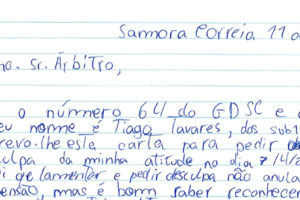 Samora Correia 11 d
mo. Sr. Árbitro,
o número 64 do GDSC e o
eu nome é Tiago Tavares, dos sub1
revo.lhe esta carta para pedir de
culpa da minha atitude no dia 7/4/2
ei que lamentar e pedir desculpa não anula
ensão, mas é bom saber reconhecer